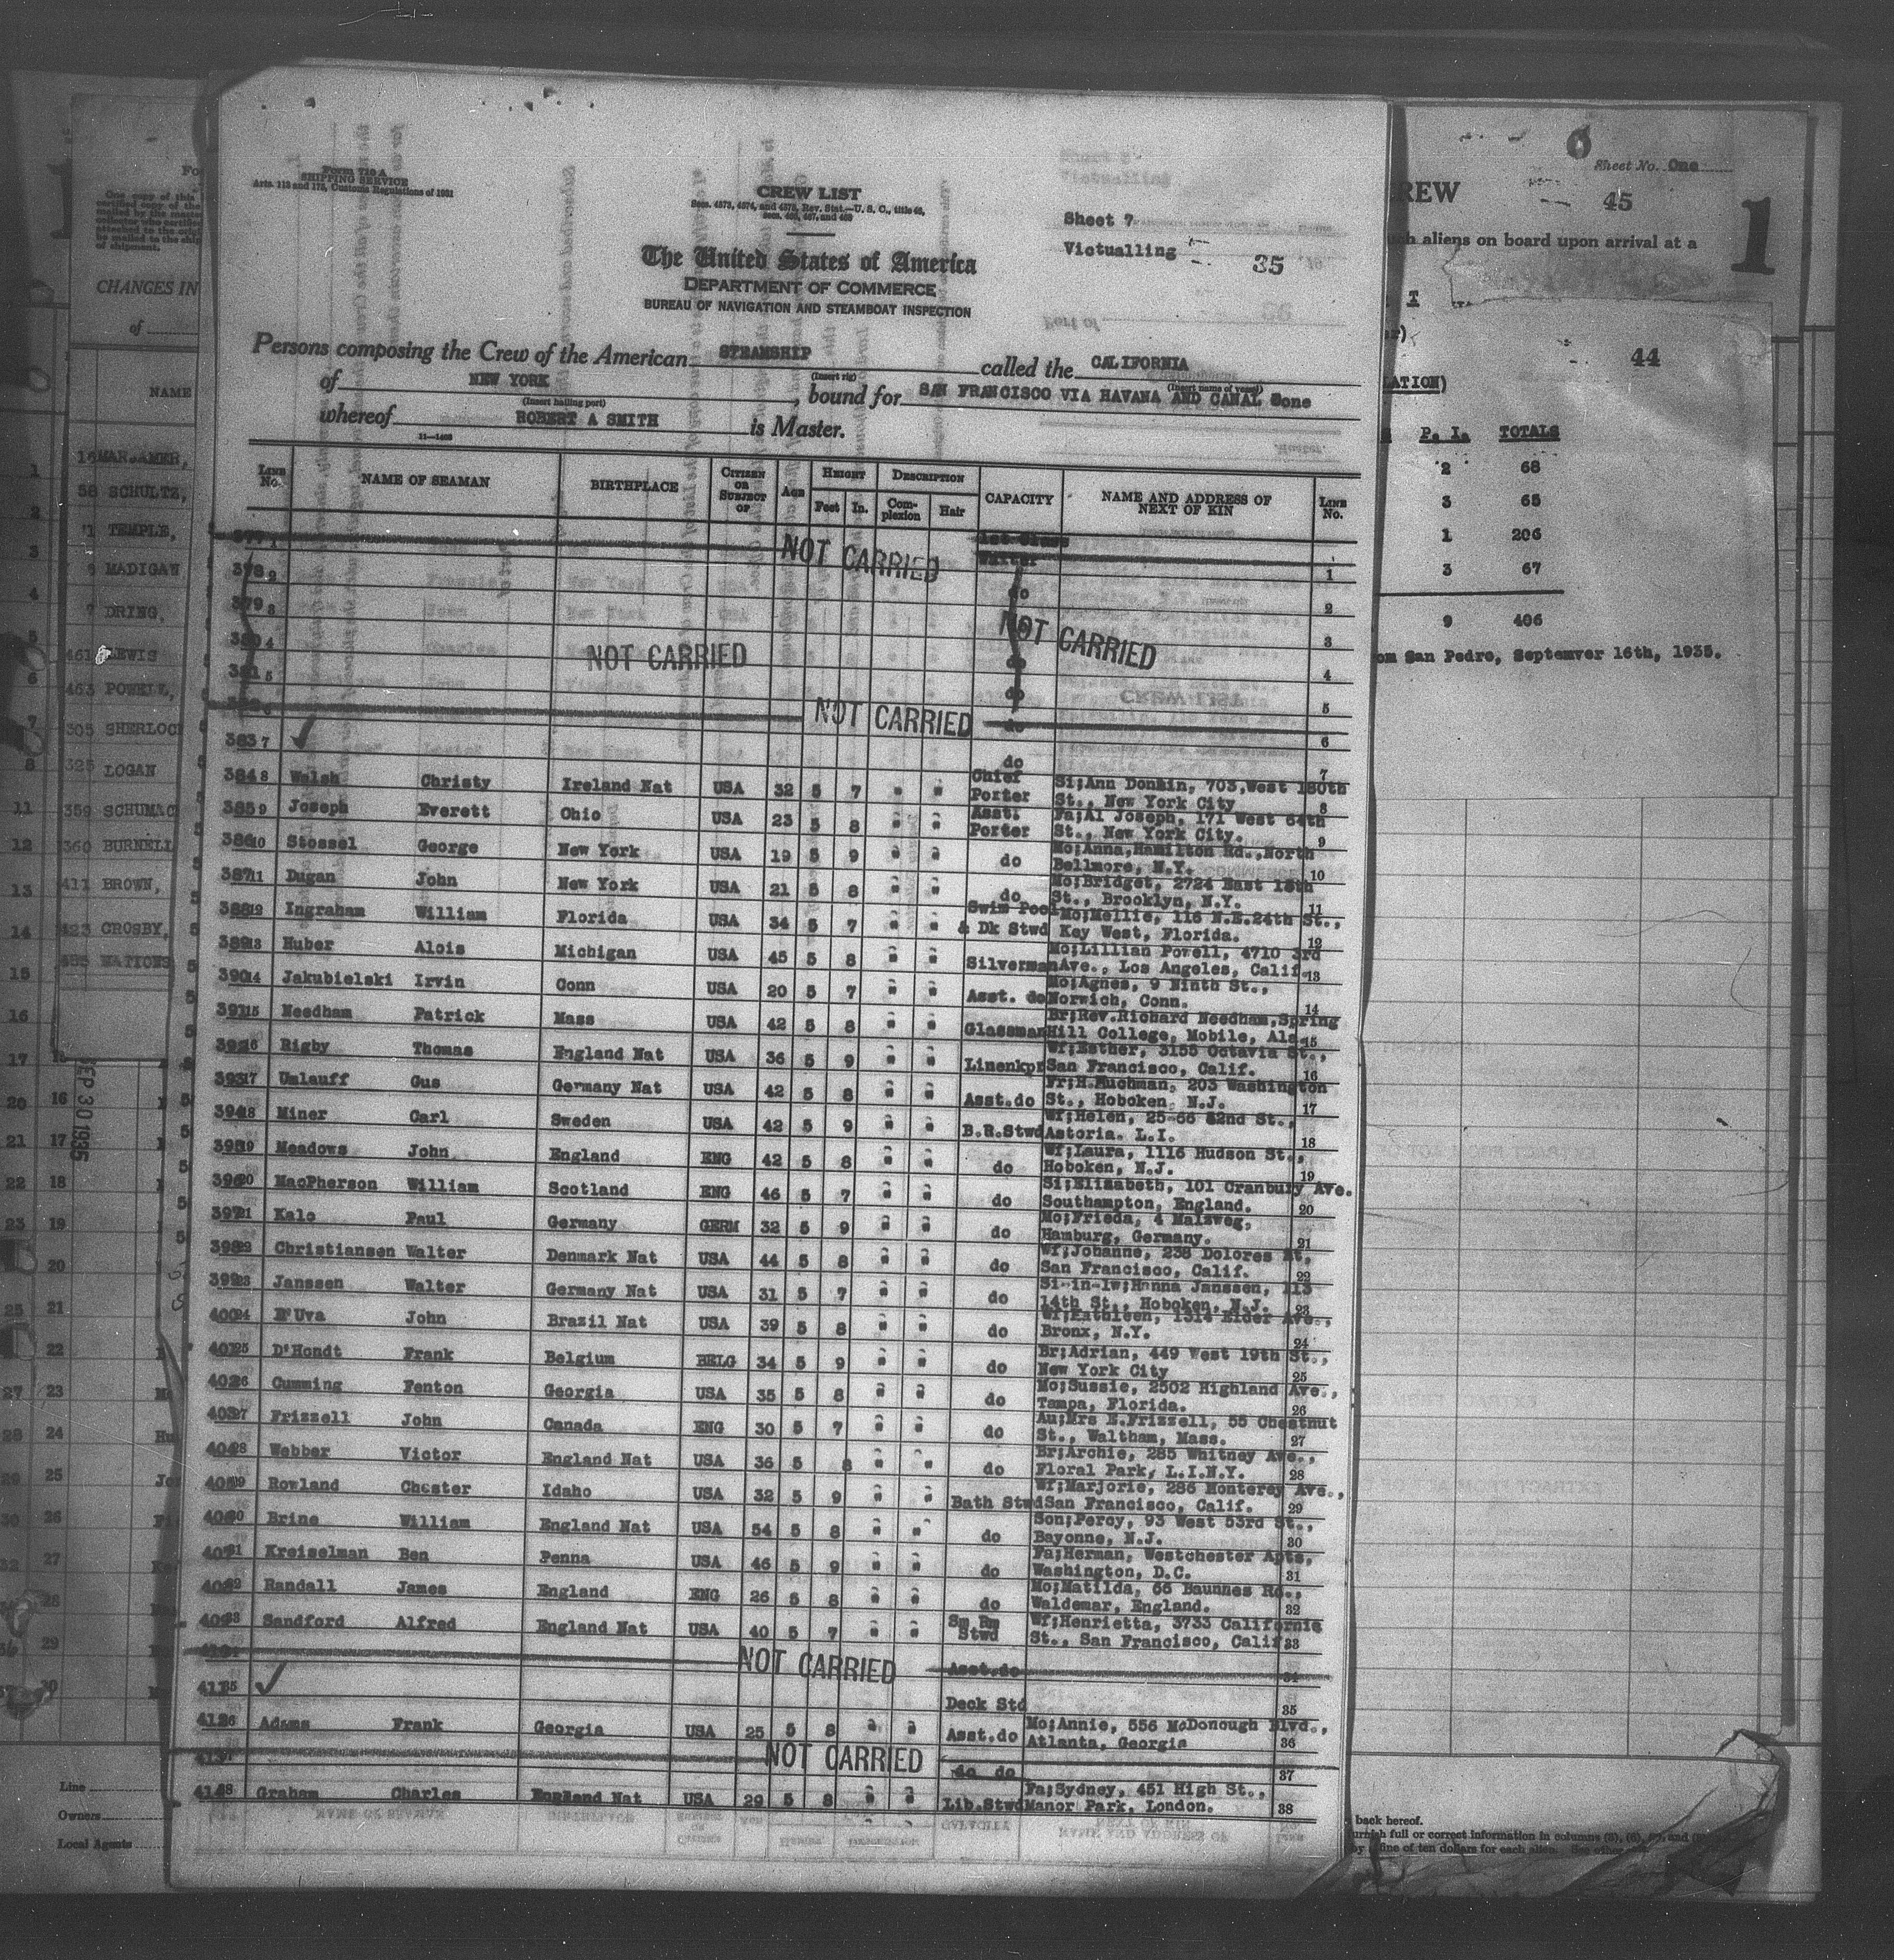 Form 710 A
SHIPPING SERVICE
Arts. 113 and 173, Customs Regulations of 1931
CREW LIST
Secs. 4573, 4574, and 4575, Rev. Stat.—U. S. C., title 46,
secs. 466, 467, and 469
Sheet 7
Victualling
35
The United States of America
DEPARTMENT OF COMMERCE
BUREAU OF NAVIGATION AND STEAMBOAT INSPECTION
Persons composing the Crew of the American STEAMSHIP called the CALIFORNIA
(Insert rig) (Insert name of vessel)
of NEW YORK, bound for SAN FRANCISCO VIA HAVANA AND CANAL Zone
(Insert hailing port)
whereof ROBERT A SMITH is Master.
LINE No. NAME OF SEAMAN BIRTHPLACE CITIZEN OR SUBJECT OF Age HEIGHT Feet In. DESCRIPTION Complexion Hair CAPACITY NAME AND ADDRESS OF NEXT OF KIN LINE No.
377 1 NOT CARRIED 1st Class Waiter 1
378 2 do 2
379 3 NOT CARRIED 3
380 4 NOT CARRIED do 4
381 5 do 5
NOT CARRIED do 6
383 7 do 7
384 8 Walsh Christy Ireland Nat USA 32 5 7 " " Chief Porter Si;Ann Donlin, 703,West 180th St., New York City 8
385 9 Joseph Everett Ohio USA 23 5 8 " " Asst. Porter Fa;Al Joseph, 171 West 64th St., New York City. 9
386 10 Stossel George New York USA 19 5 9 " " do Mo;Anna,Hamilton Rd.,North Bellmore, N.Y. 10
387 11 Dugan John New York USA 21 5 8 " " do Mo;Bridget, 2724 East 18th St., Brooklyn, N.Y. 11
388 12 Ingraham William Florida USA 34 5 7 " " Swim Pool & Dk Stwd Mo;Mellie, 116 N.E.24th St., Key West, Florida. 12
389 13 Huber Alois Michigan USA 45 5 8 " " Silverman Mo;Lillian Powell, 4710 3rd Ave., Los Angeles, Calif. 13
390 14 Jakubielski Irvin Conn USA 20 5 7 " " Asst. do Mo;Agnes, 9 Ninth St., Norwich, Conn. 14
391 15 Needham Patrick Mass USA 42 5 8 " " Glassman Br;Rev.Richard Needham,Spring Hill College, Mobile, Ala. 15
392 16 Rigby Thomas England Nat USA 36 5 9 " " Linenkpr Wf;Esther, 3155 Octavia St., San Francisco, Calif. 16
393 17 Umlauff Gus Germany Nat USA 42 5 8 " " Asst.do Fr;H.Muchman, 203 Washington St., Hoboken, N.J. 17
394 18 Miner Carl Sweden USA 42 5 9 " " B.R.Stwd Wf;Helen, 25-66 42nd St., Astoria. L.I. 18
395 19 Meadows John England ENG 42 5 8 " " do Wf;Laura, 1116 Hudson St., Hoboken, N.J. 19
396 20 MacPherson William Scotland ENG 46 5 7 " " do Si;Elizabeth, 101 Cranbury Ave. Southampton, England. 20
397 21 Kalo Paul Germany GERM 32 5 9 " " do Mo;Frieda, 4 Malzweg, Hamburg, Germany. 21
398 22 Christiansen Walter Denmark Nat USA 44 5 8 " " do Wf;Johanne, 238 Dolores St, San Francisco, Calif. 22
399 23 Janssen Walter Germany Nat USA 31 5 7 " " do Si-in-lw;Hanna Janssen, 113 14th St., Hoboken, N.J. 23
400 24 D'Uva John Brazil Nat USA 39 5 8 " " do Wf;Kathleen, 1314 Elder Ave., Bronx, N.Y. 24
401 25 D'Hondt Frank Belgium BELG 34 5 9 " " do Br;Adrian, 449 West 19th St., New York City 25
402 26 Cumming Fenton Georgia USA 35 5 8 " " do Mo;Sussie, 2502 Highland Ave., Tampa, Florida. 26
403 27 Frizzell John Canada ENG 30 5 7 " " do Au;Mrs E.Frizzell, 55 Chestnut St., Waltham, Mass. 27
404 28 Webber Victor England Nat USA 36 5 8 " " do Br;Archie, 285 Whitney Ave., Floral Park, L.I.N.Y. 28
405 29 Rowland Chester Idaho USA 32 5 9 " " Bath Stwd Wf;Marjorie, 286 Monterey Ave., San Francisco, Calif. 29
406 30 Brine William England Nat USA 54 5 8 " " do Son;Percy, 93 West 53rd St., Bayonne, N.J. 30
407 31 Kreiselman Ben Penna USA 46 5 9 " " do Fa;Herman, Westchester Apts, Washington, D.C. 31
408 32 Randall James England ENG 26 5 8 " " do Mo;Matilda, 66 Baunnes Rd., Waldemar, England. 32
409 33 Sandford Alfred England Nat USA 40 5 7 " " Sm Rm Stwd Wf;Henrietta, 3733 California St., San Francisco, Calif 33
NOT CARRIED Asst.do 34
411 35 Deck Std 35
412 36 Adams Frank Georgia USA 25 5 8 " " Asst.do Mo;Annie, 556 McDonough Blvd., Atlanta, Georgia 36
413 NOT CARRIED do do 37
414 38 Graham Charles England Nat USA 29 5 8 " " Lib.Stwd Fa;Sydney, 451 High St., Manor Park, London. 38
CHANGES IN
of
NAME
SCHULTZ,
TEMPLE,
MADIGAN
DRING,
461 LEWIS
463 POWELL,
305 SHERLOC
325 LOGAN
359 SCHUMAC
360 BURNELL
411 BROWN,
423 CROSBY,
SEP 30 1935
Line
Owners
Local Agents
Sheet No. One
REW
45
1
ch aliens on board upon arrival at a
44
P. I. TOTALS
2 68
3 65
1 206
3 67
9 406
om San Pedro, Septemver 16th, 1935.
back hereof.
urnish full or correct information in columns (5), (6),
by fine of ten dollars for each alien.